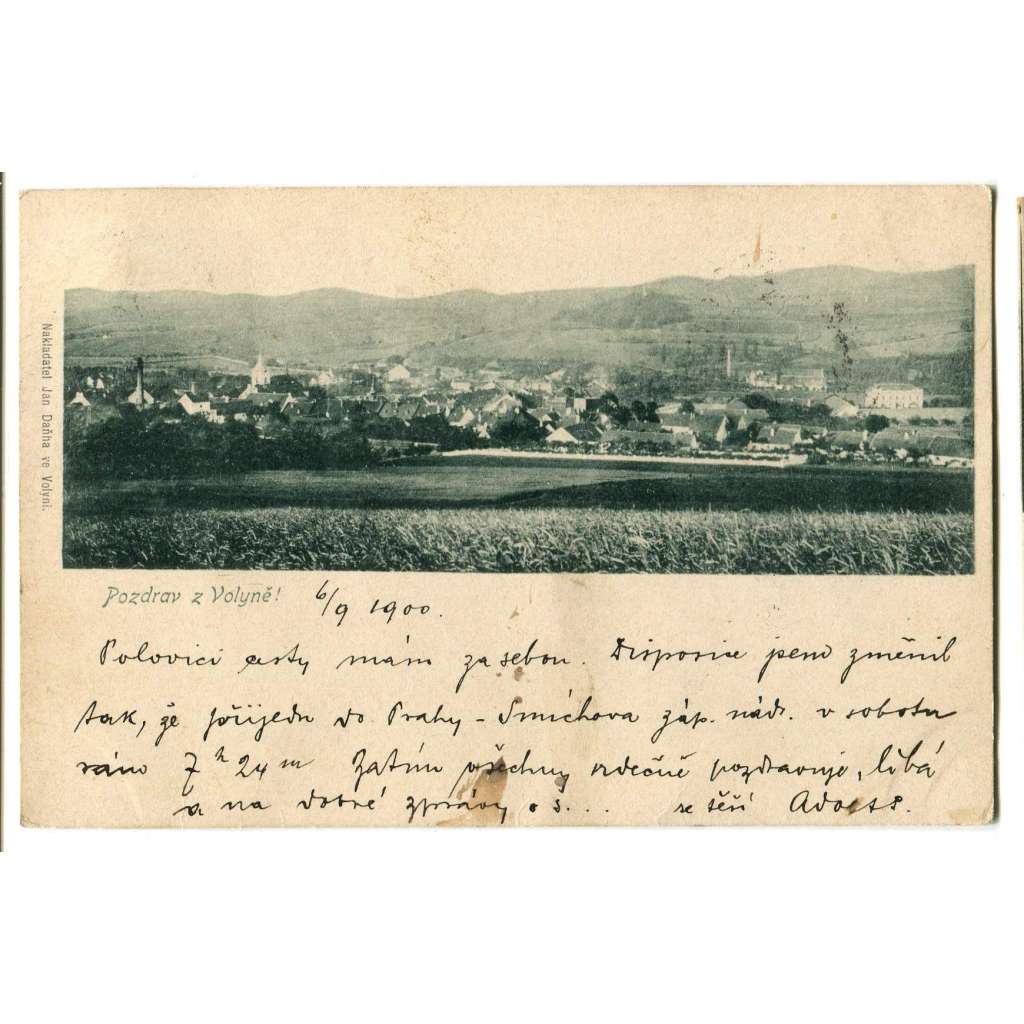 Nakladatel Jan Daňha ve Volyni.
Pozdrav z Volyně! 6/9 1900.
Polovici cesty mám za sebou. Disposice jsem změnil
tak, že přijedu do Prahy - Smíchova záp. nádr. v sobotu
ráno 7 h 24 m Zatím všechny srdečně pozdravuje, líbá
a na dobré zprávy o S... se těší